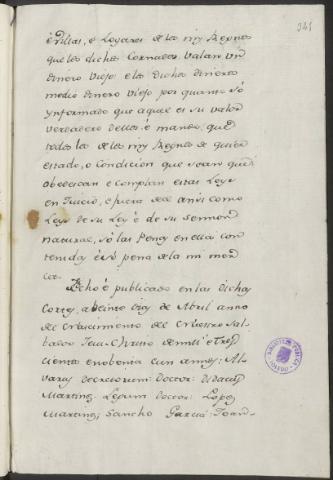 341
é Villas, é Logares de los mis Reynos
que los dichos Cornados valan un
dinero viejo: e los dichos dineros
medio dinero viejo por quanto só
ynformado que aquel es su valor
verdadero dellos: é mando, que
todos los de los mis Reynos de quier
estado, o condicion que sean que
obedescan e cumplan estas Leys
en Juicio, é fuera del ansi como
Leys de su Ley é de su señor
natural, so las Penas en ellas con
tenidas é so pena de la mi mer
ced.
Fecho é publicado en las dichas
Cortes, a veinte dias de Abril anno
del Nascimiento del Nuestro Sal-
bador Jesu-Christo de mill é tres
cientos e nobenta e un annos: Al-
varus decretorum: Doctor: Didacus
Martinus, Legum Doctor: Lopez
Martinez; Sancho Garcia: Joan-
BIBLIOTECA PUBLICA
TOLEDO